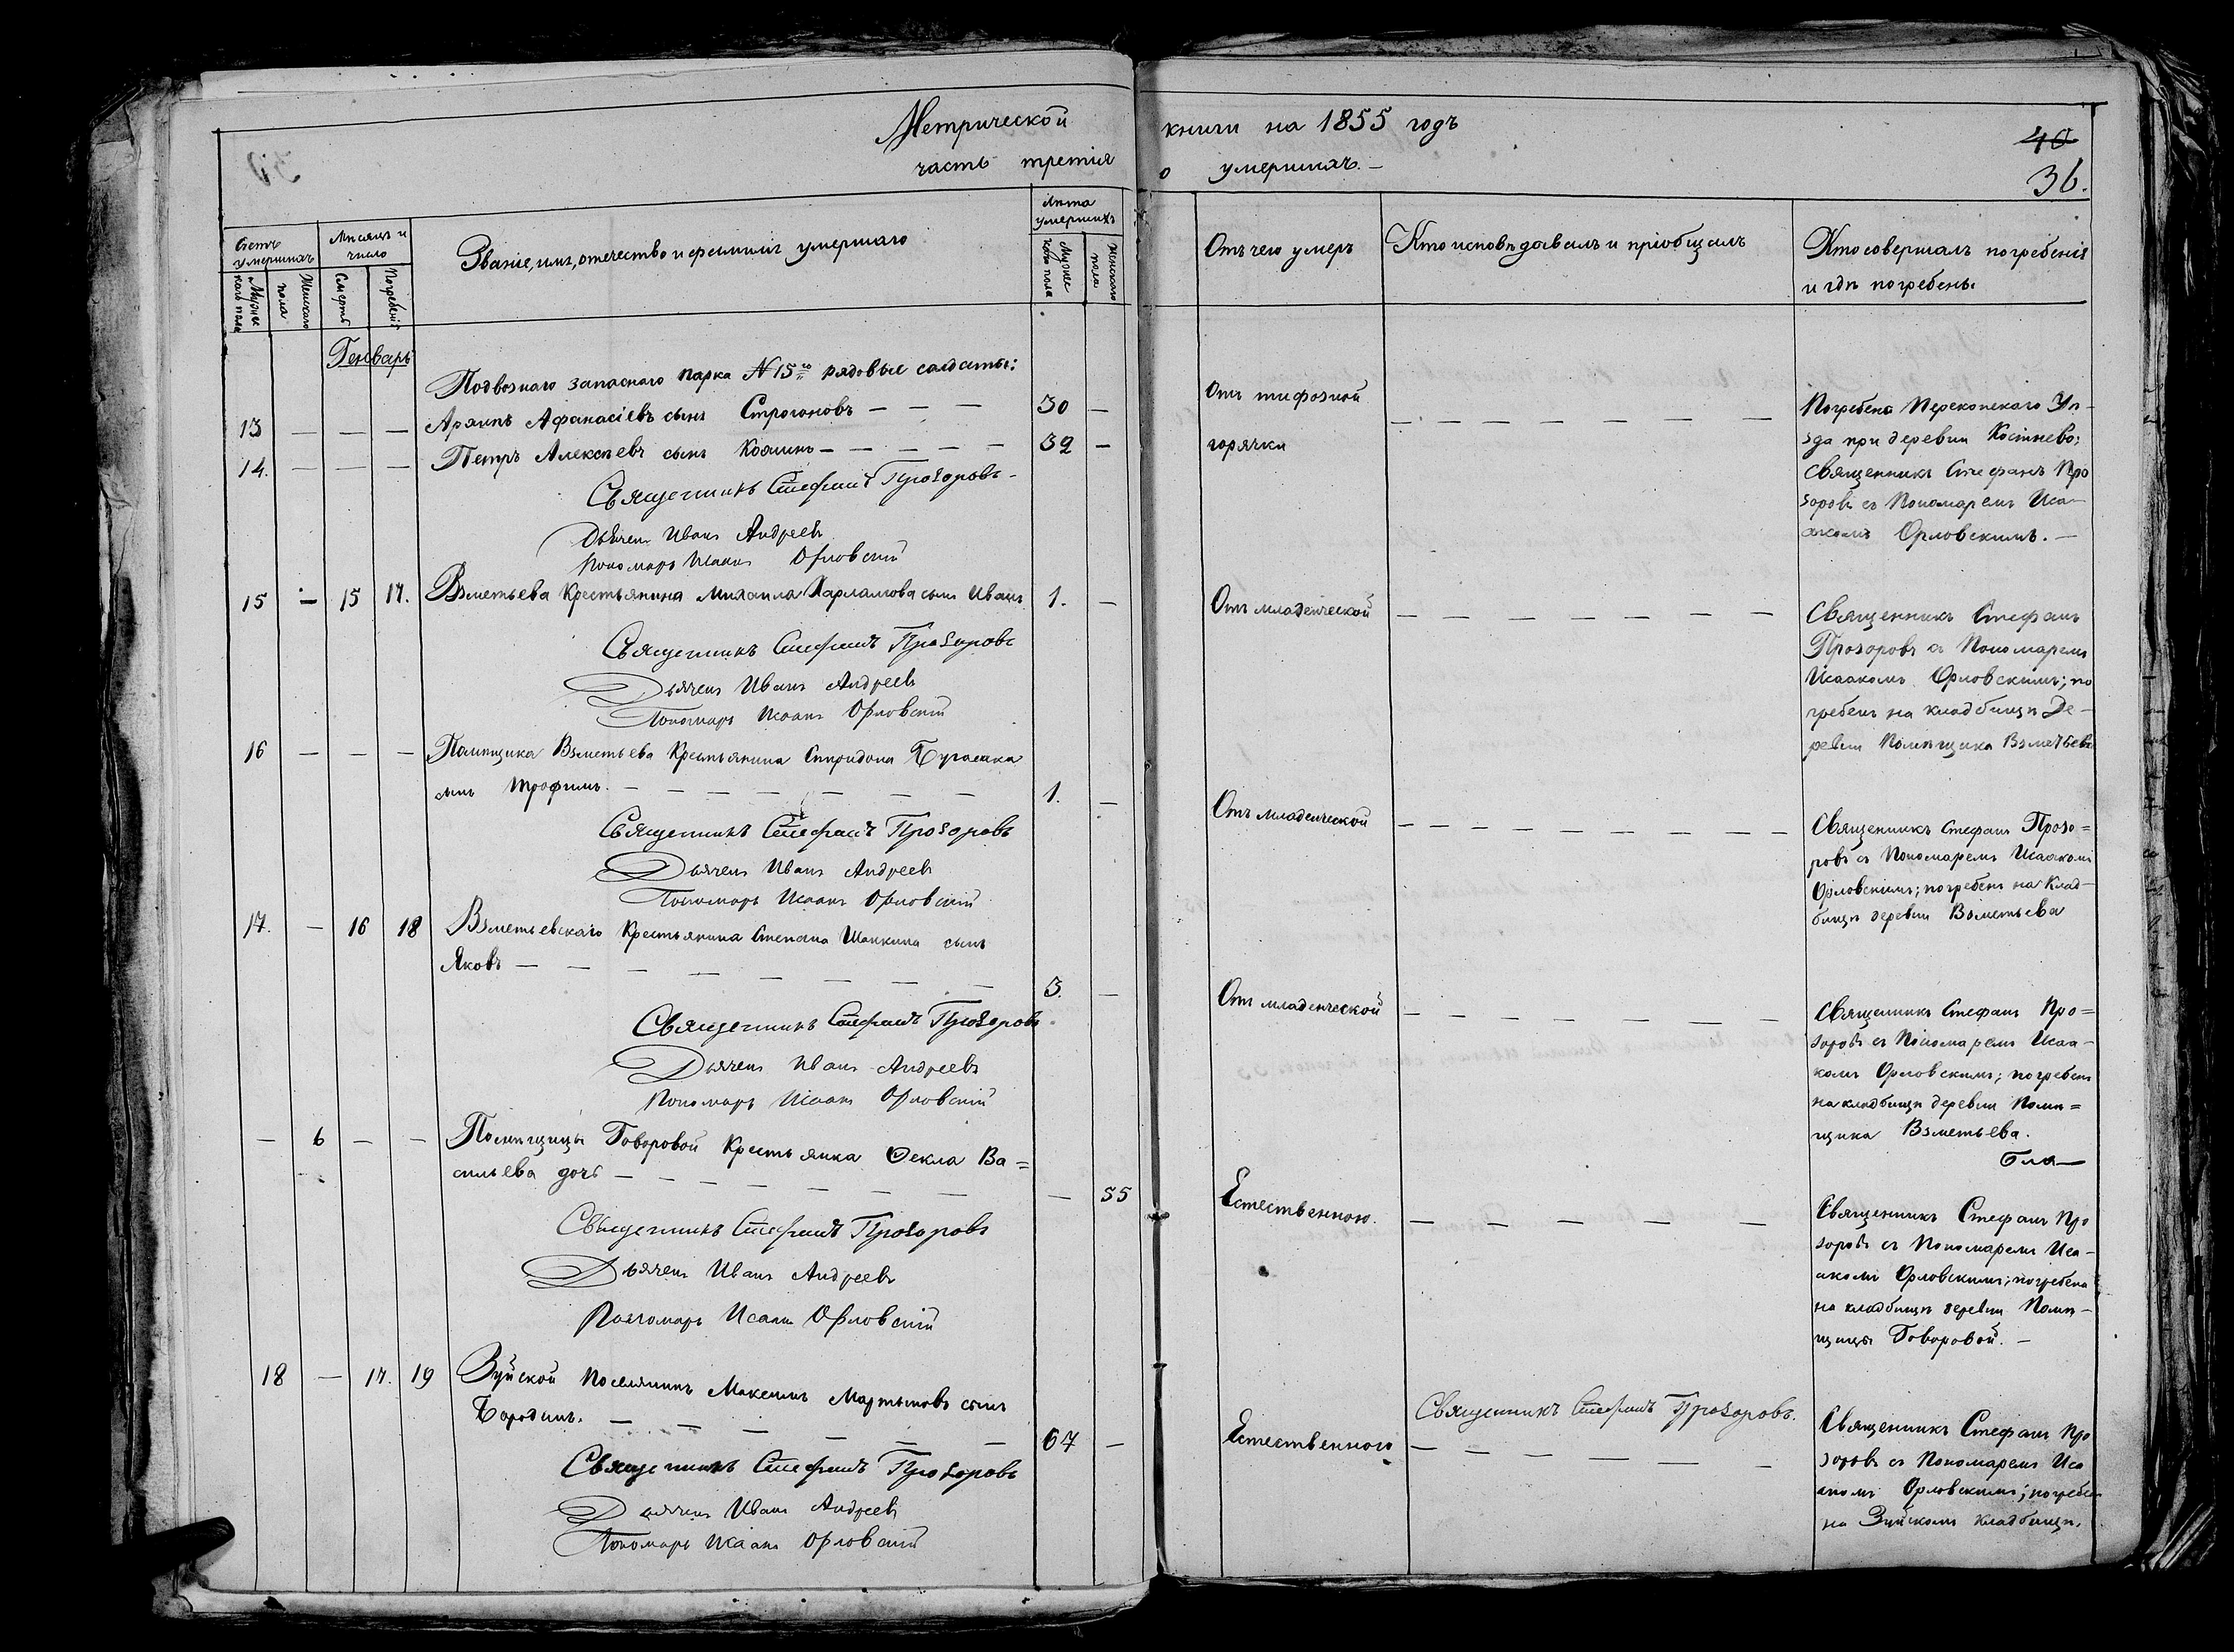 Метрической книги на 1855 годъ
часть третія о умершихъ. —
40
36.
Счетъ умершихъ
Мужескаго пола
Женскаго пола
Мѣсяцъ и число
Смерти
Погребенія
Званіе, имя, отечество и фамилія умершаго
Лѣта умершихъ
Мужескаго пола
Женскаго пола
Отъ чего умеръ
Кто исповѣдавалъ и пріобщалъ
Кто совершалъ погребенія
и гдѣ погребены
Генварь
Подвознаго запаснаго парка № 15го рядовые солдаты:
13 — — — Архипъ Афанасіевъ сынъ Строгоновъ — — — 30 —
14. — — — Петръ Алексѣевъ сынъ — — — — 32 —
Священникъ Стефанъ Прозоровъ
Дьячекъ Иванъ Андреевъ
Пономарь Исаакъ Орловскій
Отъ тифозной
горячки
Погребена Перекопскаго Уѣ-
зда при деревни
Священникъ Стефанъ Про
зоровъ съ Пономаремъ Иса-
акомъ Орловскимъ. —
15 — 15 17. Взметьева Крестьянина Михаила Харламова сынъ Иванъ 1. —
Священникъ Стефанъ Прозоровъ
Дьячекъ Иванъ Андреевъ
Пономарь Исаакъ Орловскій
Отъ младенческой
Священникъ Стефанъ
Прозоровъ съ Пономаремъ
Исаакомъ Орловскимъ; по
гребенъ на кладбищѣ Де-
ревни Помѣщика Взметьева
16 — — — Помѣщика Взметьева Крестьянина Спиридона
сынъ Трофимъ. — — — — — — 1. —
Священникъ Стефанъ Прозоровъ
Дьячекъ Иванъ Андреевъ
Пономарь Исаакъ Орловскій
Отъ младенческой
Священникъ Стефанъ Прозо=
ровъ съ Пономаремъ Исаакомъ
Орловскимъ; погребенъ на Клад-
бищѣ деревни Взметьева
17. — 16 18 Взметьевскаго Крестьянина Степана Шаккина сынъ
Яковъ — — — — — — — 3. —
Священникъ Стефанъ Прозоровъ
Дьячекъ Иванъ Андреевъ
Пономарь Исаакъ Орловскій
Отъ младенческой
Священникъ Стефанъ Про=
зоровъ съ Пономаремъ Исаа-
комъ Орловскимъ; погребенъ
на кладбищѣ деревни Помѣ=
щика Взметьева.
— 6 — — Помѣщицы Говоровой Крестьянка Ѳекла Ва=
сильева дочь — — — — — — — — 55
Священникъ Стефанъ Прозоровъ
Дьячекъ Иванъ Андреевъ
Пономарь Исаакъ Орловскій
Естественною.
Священникъ Стефанъ Про
зоровъ съ Пономаремъ Иса-
акомъ Орловскимъ; погребена
на кладбищѣ деревни Помѣ-
щицы Говоровой. —
18 — 17. 19 Зуйской Поселянинъ Максимъ Мартыновъ сынъ
Бородинъ. — — — — — — 67 —
Священникъ Стефанъ Прозоровъ
Дьячекъ Иванъ Андреевъ
Пономарь Исаакъ Орловскій
Естественного
Священникъ Стефанъ Прозоровъ.
Священникъ Стефанъ Про
зоровъ съ Пономаремъ Иса
акомъ Орловскимъ; погребенъ
на Зуйскомъ кладбищѣ.